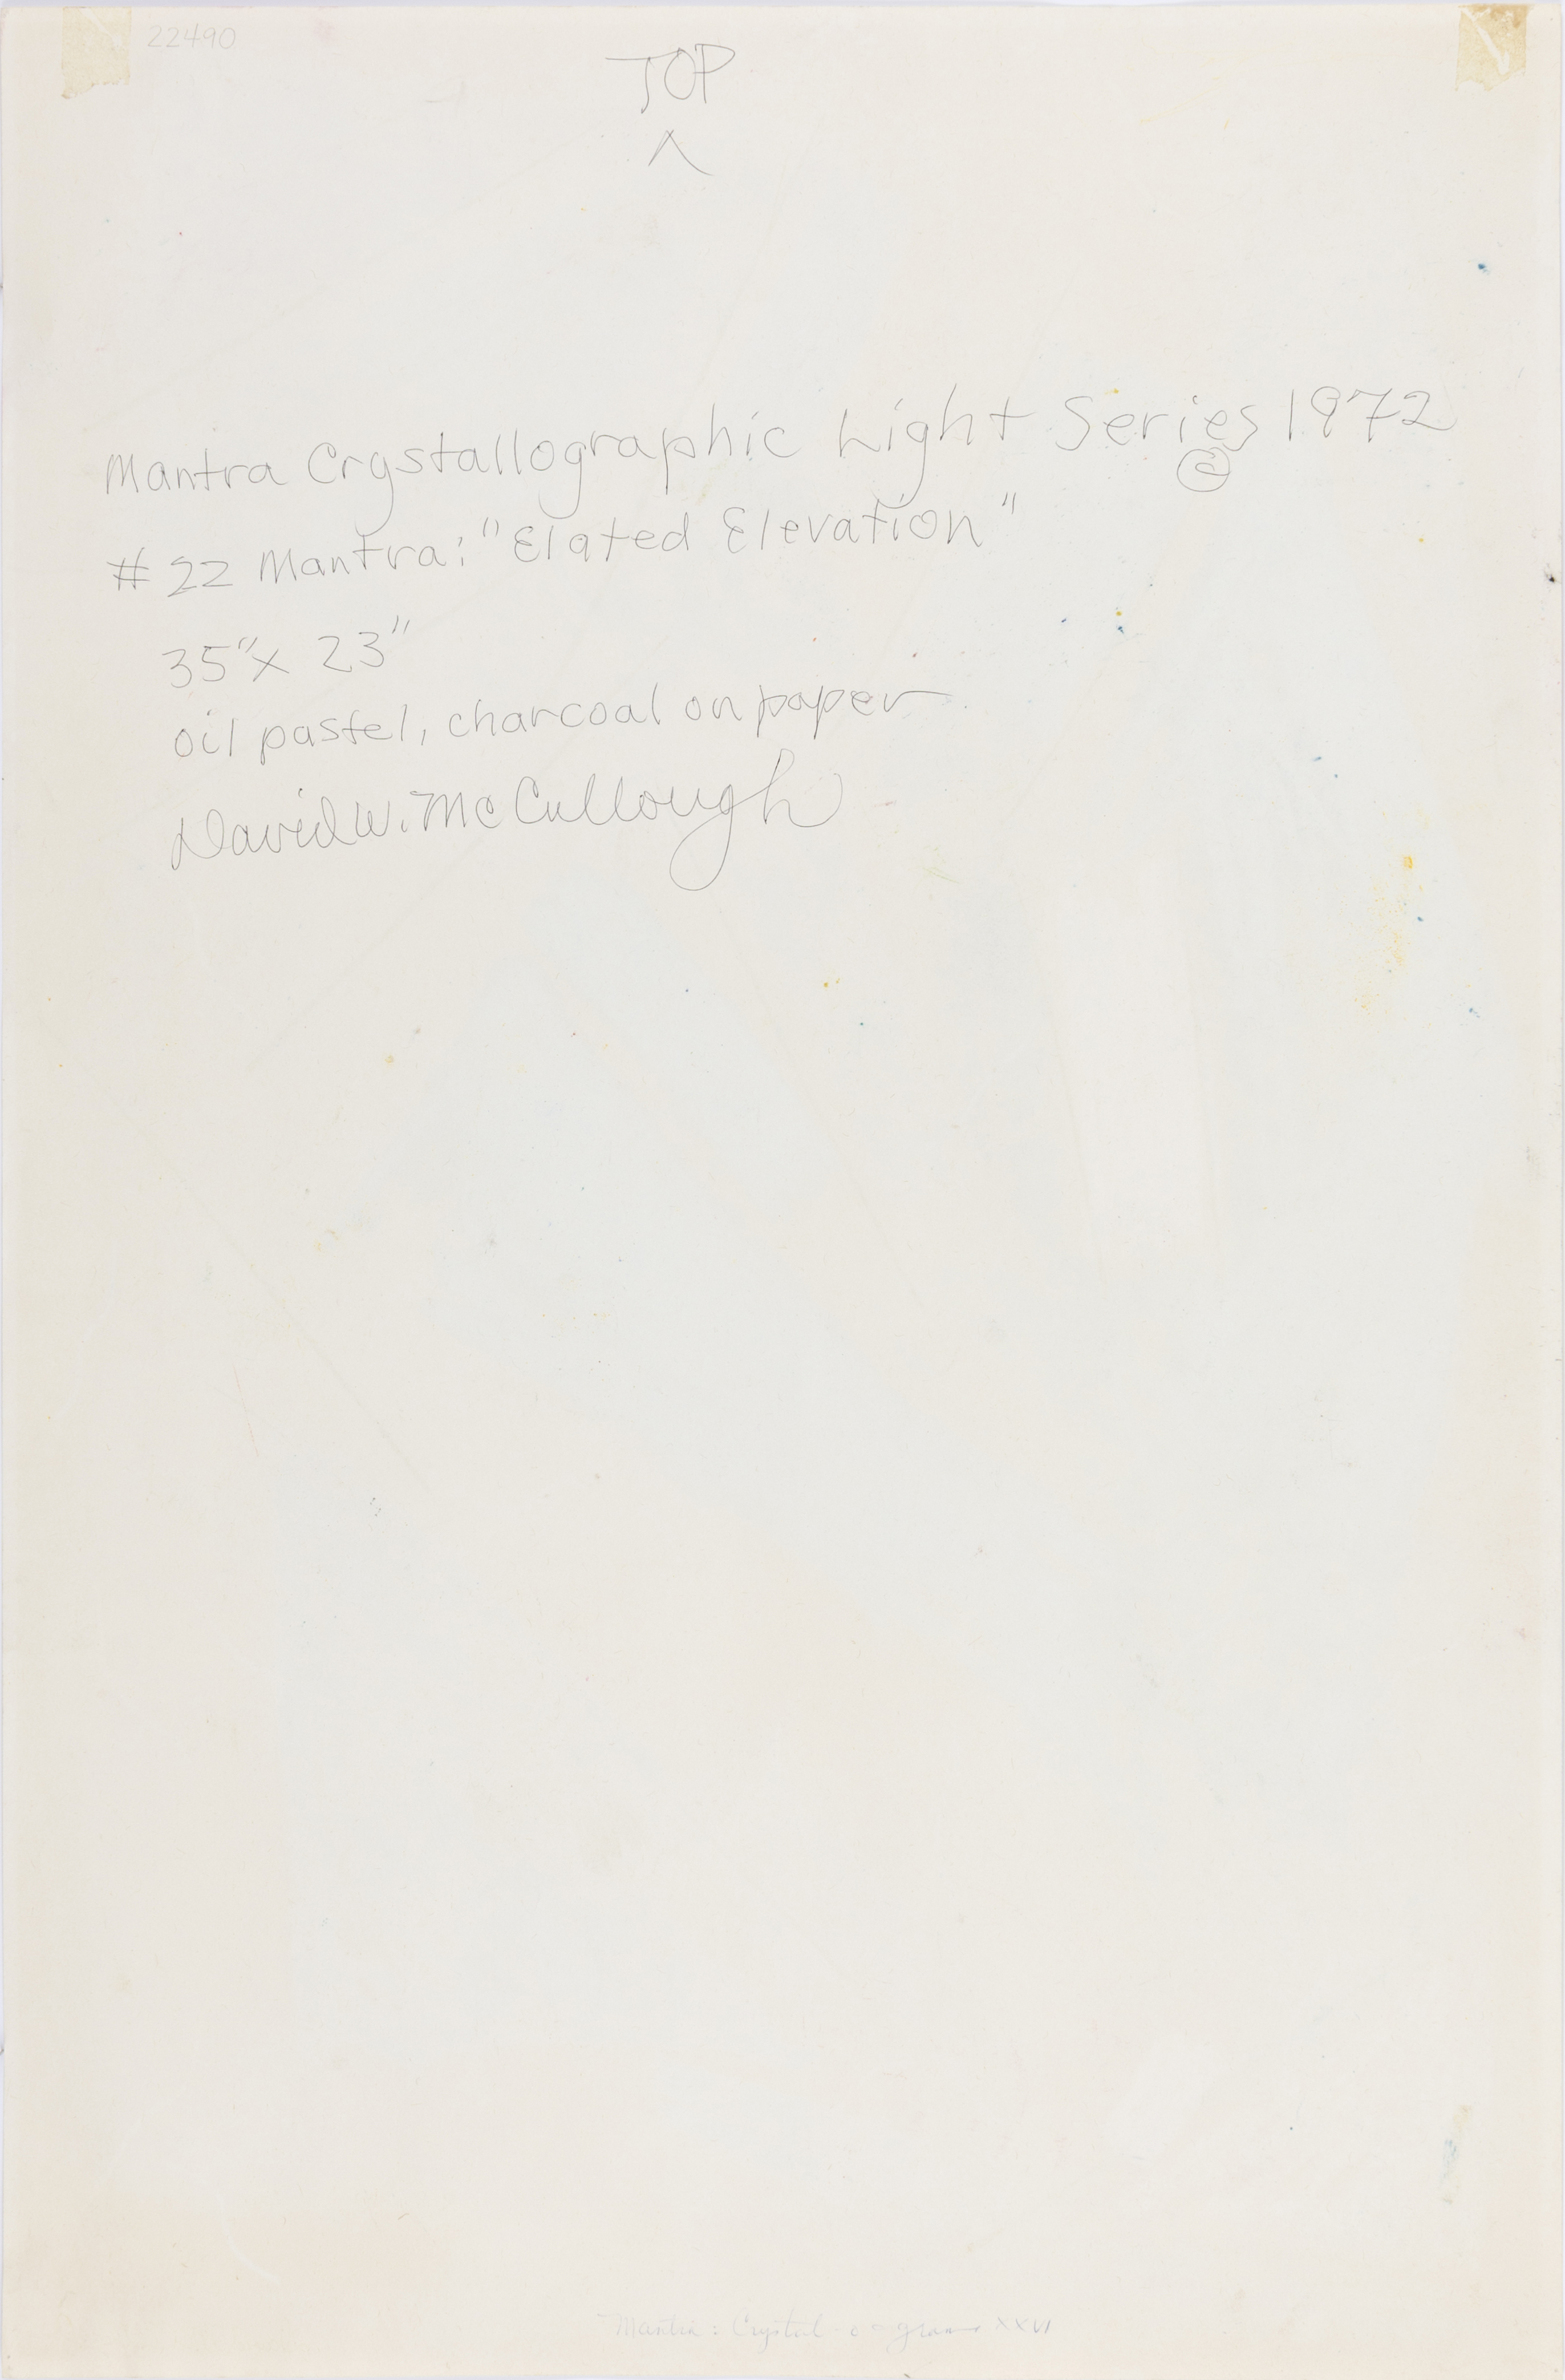 22490
TOP
^
Mantra Crystallographic Light Series 1972
©
#22 Mantra: "Elated Elevation"
35" x 23"
oil pastel, charcoal on paper
David W. McCullough
Mantra: Crystal - o - gram XXVI